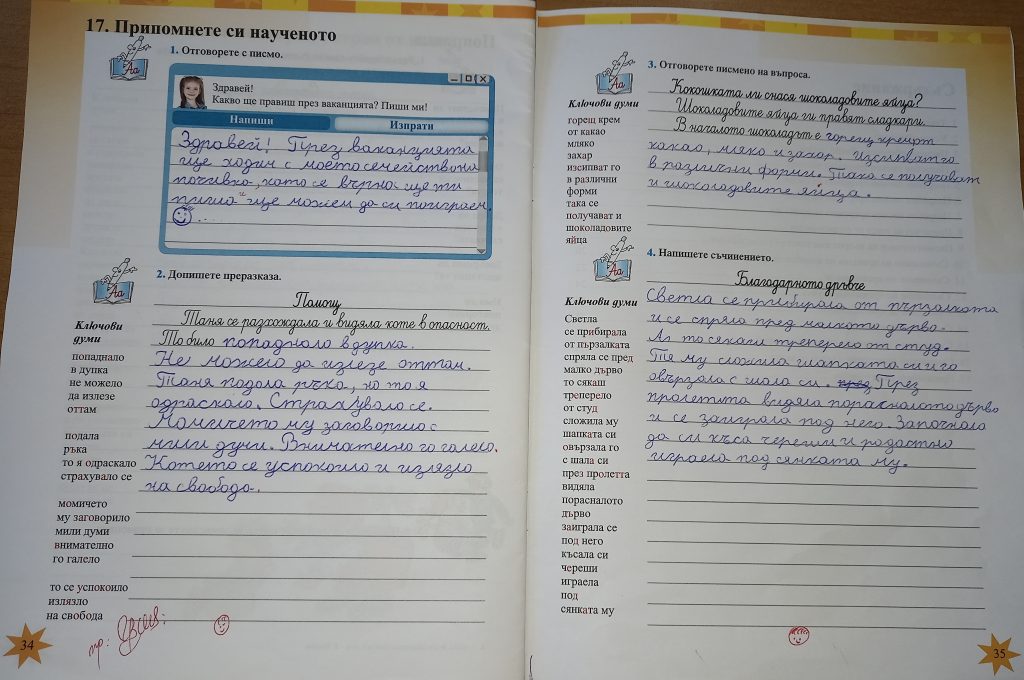 17. Припомнете си наученото
1. Отговорете с писмо.
Аа
Здравей!
Какво ще правиш през ваканцията? Пиши ми!
Напиши
Изпрати
Здравей! През ваканцията
ще ходим с моето семейство на
почивка, като се върна ще ти
пиша и ще можем да си поиграем.
2. Допишете преразказа.
Аа
Помощ
Ключови
думи
попаднало
в дупка
не можело
да излезе
оттам
подала
ръка
то я одраскало
страхувало се
момичето
му заговорило
мили думи
внимателно
го галело
то се успокоило
излязло
на свобода
Таня се разхождала и видяла коте в опасност.
То било попаднало в дупка.
Не можело да излезе оттам.
Таня подала ръка, но то я
одраскало. Страхувало се.
Момичето му заговорило с
мили думи. Внимателно го галело.
Котето се успокоило и излязло
на свобода.
34
3. Отговорете писмено на въпроса.
Аа
Ключови думи
горещ крем
от какао
мляко
захар
изсипват го
в различни
форми
така се
получават и
шоколадовите
яйца
Кокошката ли снася шоколадовите яйца?
Шоколадовите яйца ги правят сладкари.
В началото шоколадът е горещ крем от
какао, мляко и захар. Изсипват го
в различни форми. Така се получават
и шоколадовите яйца.
4. Напишете съчинението.
Аа
Благодарното дръвче
Ключови думи
Светла
се прибирала
от пързалката
спряла се пред
малко дърво
то сякаш
треперело
от студ
сложила му
шапката си
овързала го
с шала си
през пролетта
видяла
порасналото
дърво
заиграла се
под него
късала си
череши
играела
под
сянката му
Светла се прибирала от пързалката
и се спряла пред малкото дърво.
Аз то сякаш треперело от студ.
Тя му сложила шапката си и го
овързала с шала си. През
пролетта видяла порасналото дърво
и се заиграла под него. Започнала
да си къса череши и радостно
играела под сянката му.
35